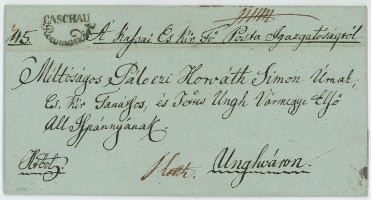 CASCHAU
A' Kassai Cs. Kir. Fő Posta Igazgatóságtól
Méltóságos Pálóczi Horváth Simon Úrnak,
Cs. Kir. Tanátsos, és Tettes Ungh Vármegye Első
All Ispánnyának.
Unghváron.